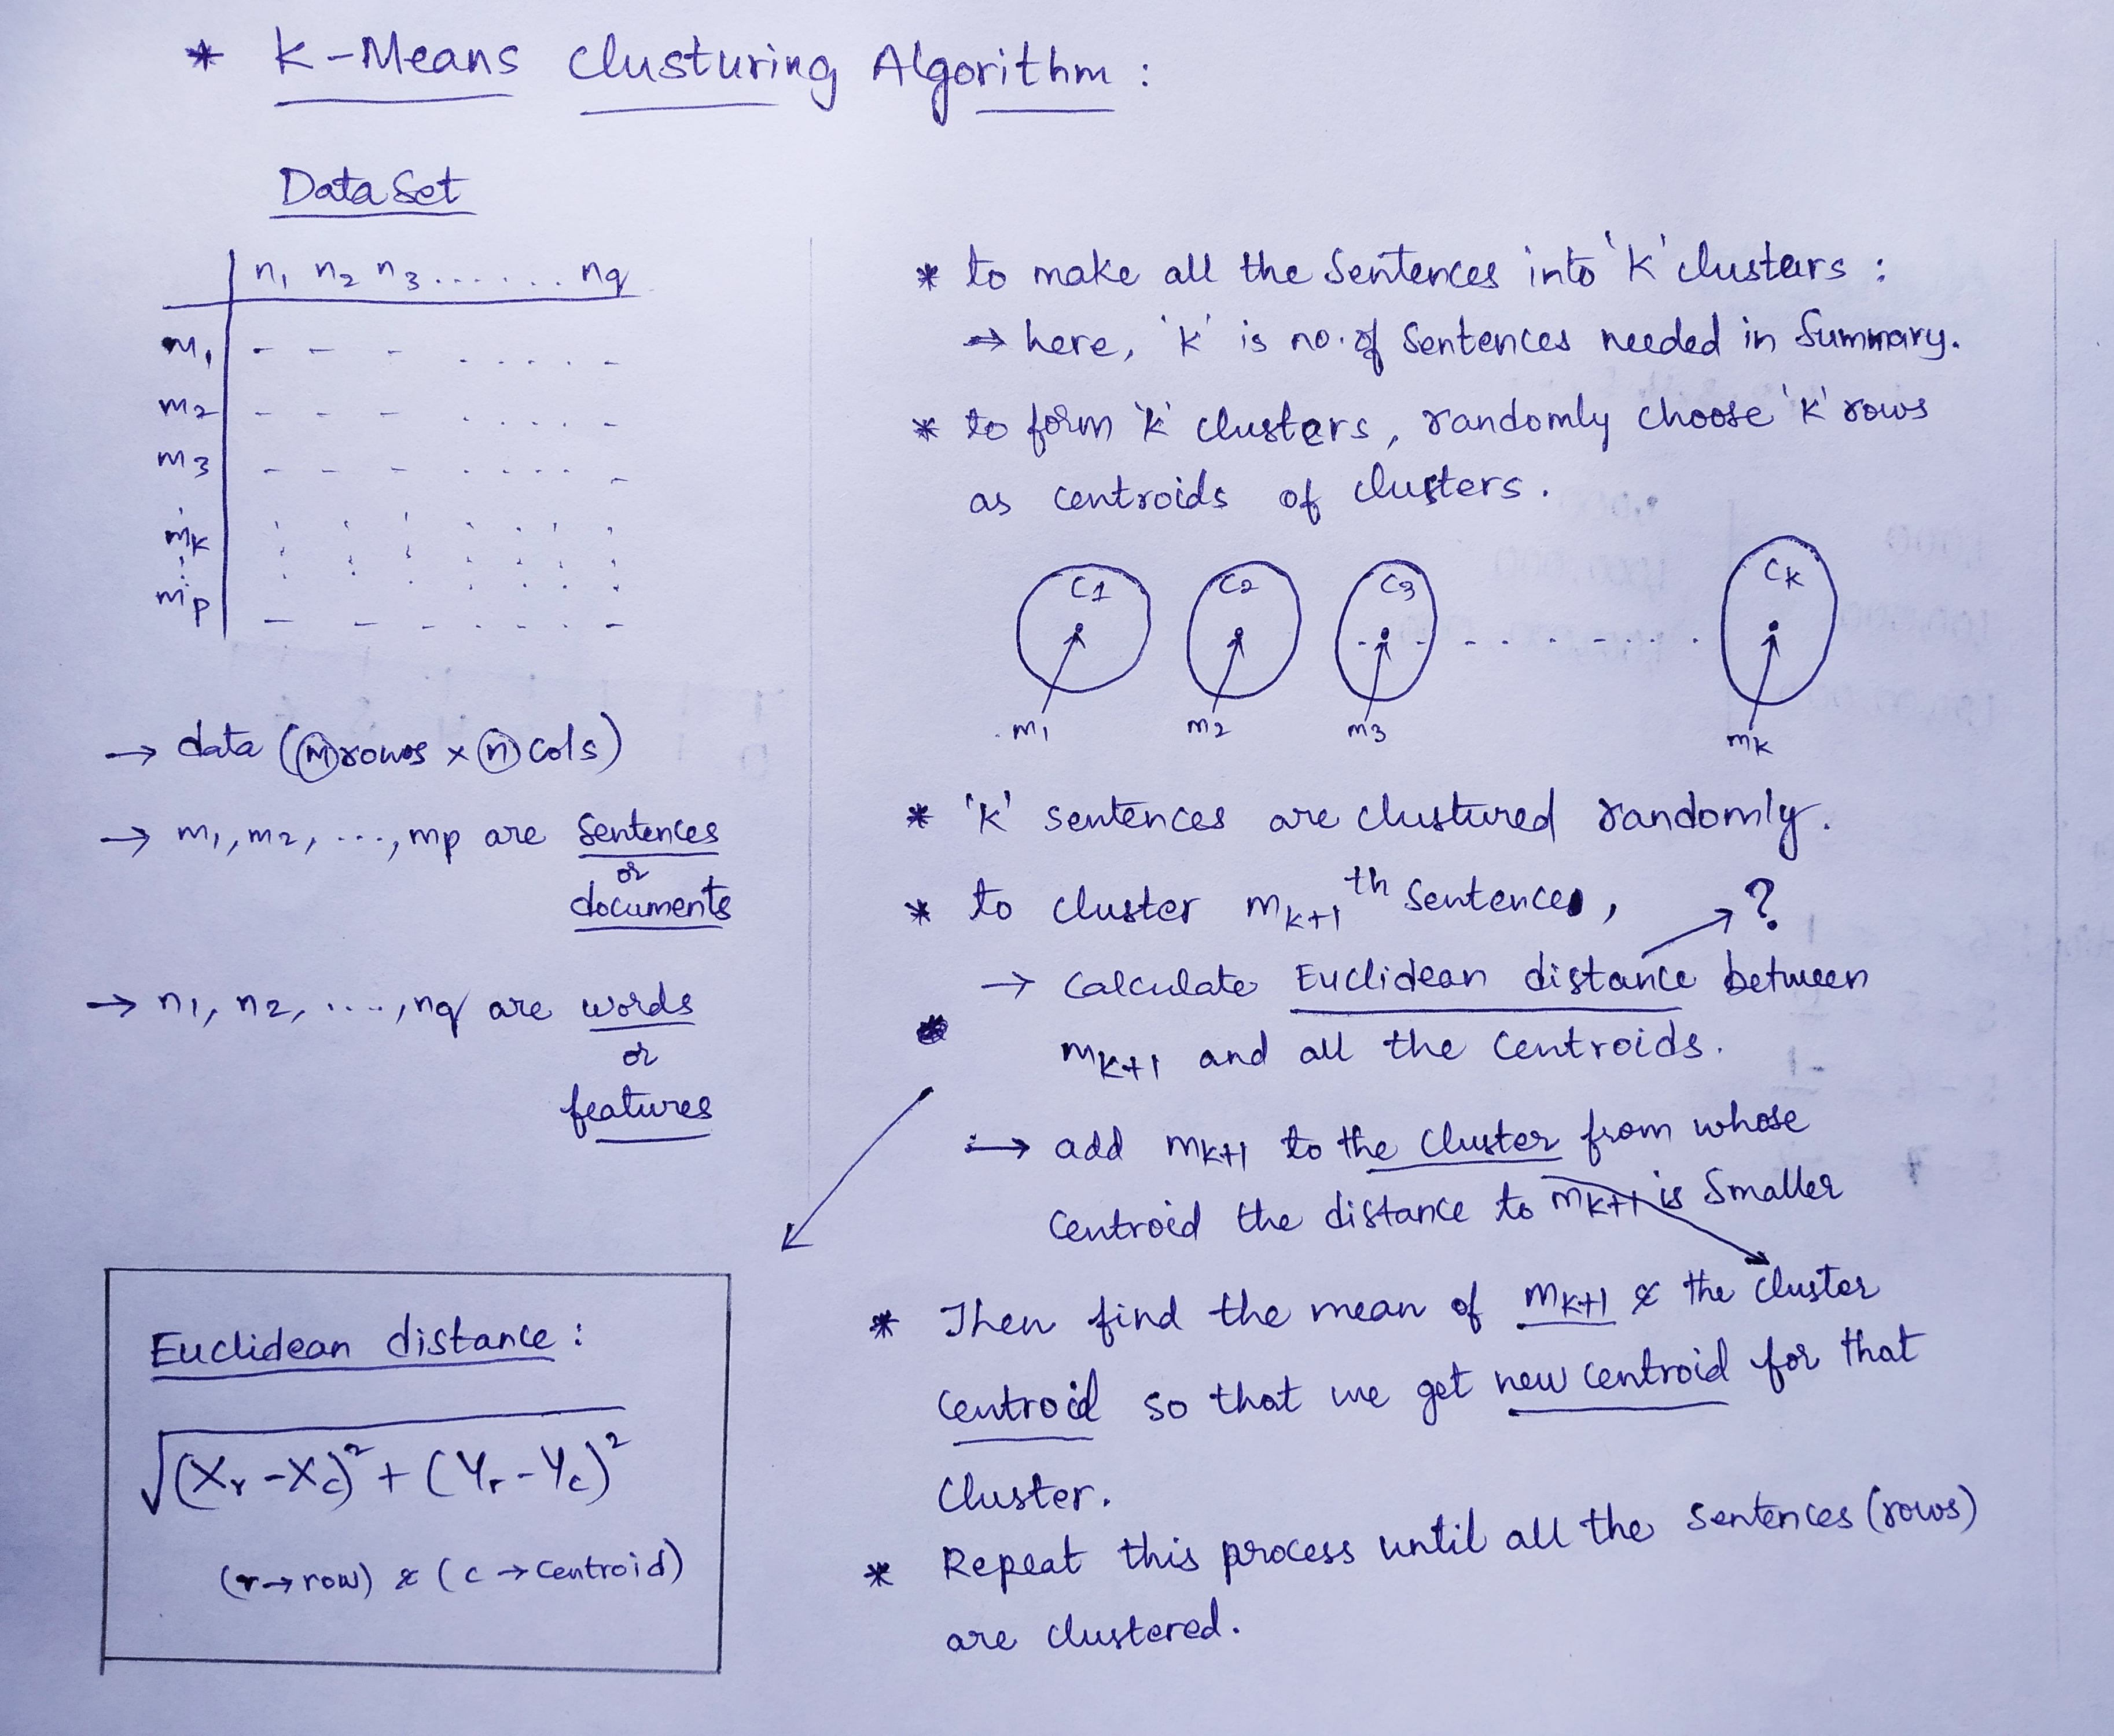 * K-Means Clusturing Algorithm :
Data Set
n1 n2 n3 ....... nq
m1 - - - ..... -
m2 - - - ..... -
m3 - - - ..... -
mk
mp - - - - - - -
→ data (m rows × n cols)
→ m1, m2, ..., mp are Sentences
or
documents
→ n1, n2, ...., nq are words
or
features
Euclidean distance :
√(Xr - Xc)² + (Yr - Yc)²
(r → row) & (c → Centroid)
* to make all the Sentences into 'K' clusters :
→ here, 'K' is no. of Sentences needed in Summary.
* to form 'K' clusters, randomly choose 'K' rows
as centroids of clusters.
C1 C2 C3 ........ CK
m1 m2 m3 mK
* 'K' sentences are clustured randomly.
* to cluster mK+1th Sentence,
→ ?
→ Calculate Euclidean distance between
mK+1 and all the centroids.
→ add mK+1 to the Cluster from whose
Centroid the distance to mK+1 is Smaller
* Then find the mean of mK+1 & the Cluster
Centroid so that we get new centroid for that
Cluster.
* Repeat this process until all the Sentences (rows)
are clustered.